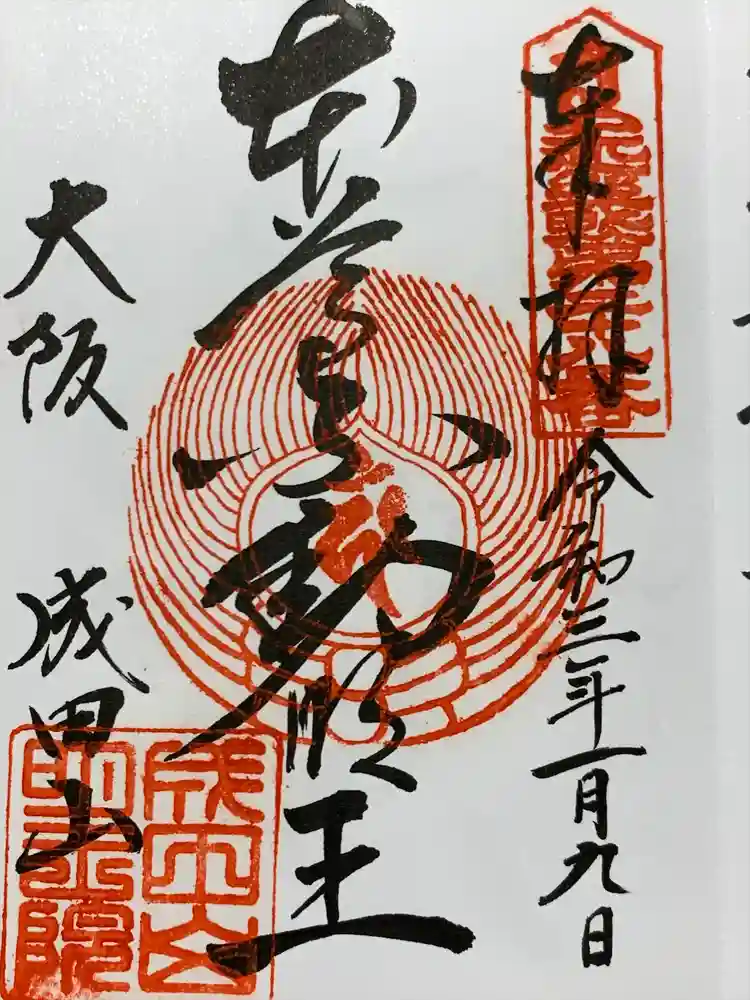 奉拝
令和三年一月九日
本尊不動明王
大阪 成田山
成田山
明王院